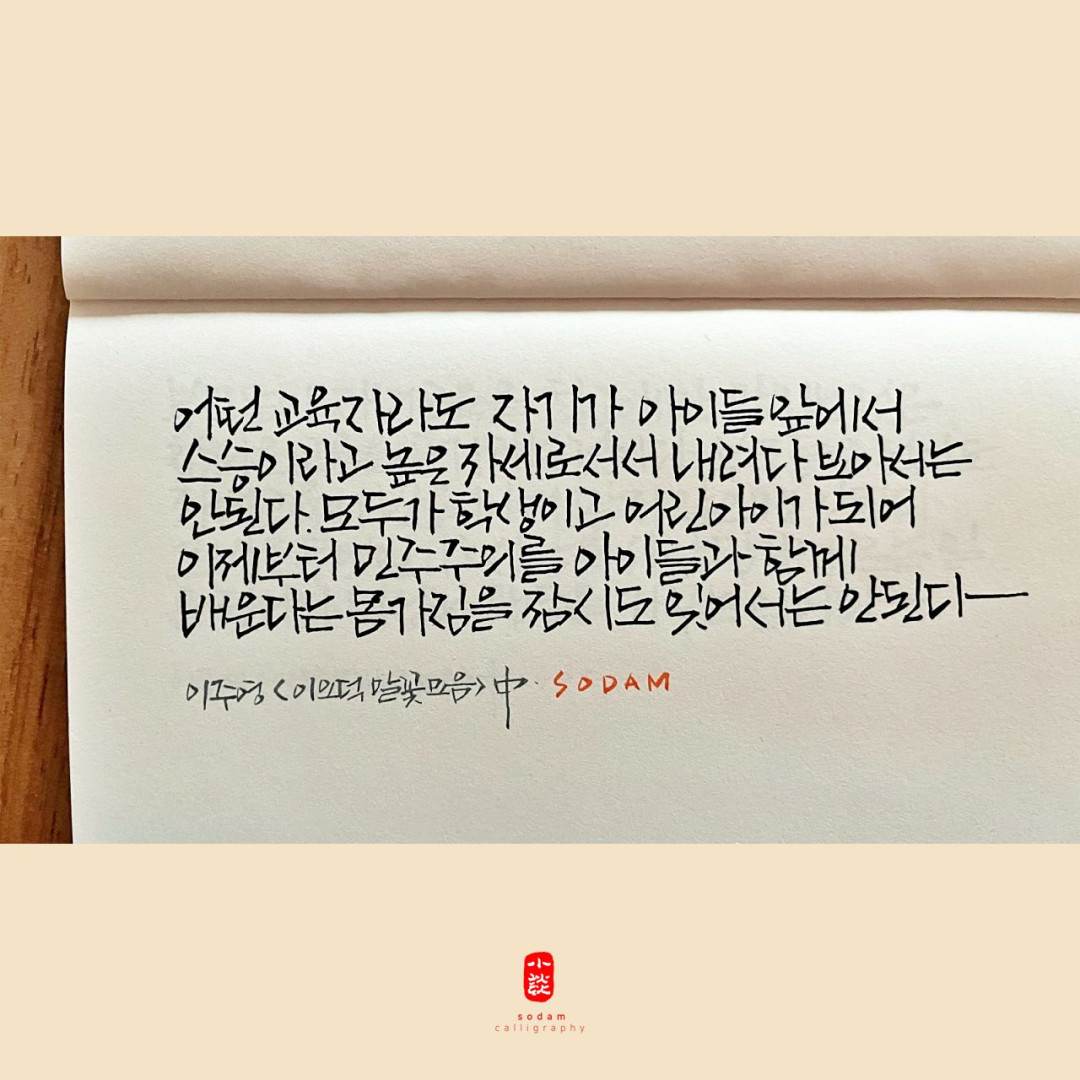 어떤 교육자라도 자기가 아이들 앞에서
스승이라고 높은 자세로 서서 내려다 보아서는
안된다. 모두가 학생이고 어린아이가 되어
이제부터 민주주의를 아이들과 함께
배운다는 몸가짐을 잠시도 잊어서는 안된다
이주영 <이오덕 말꽃모음> 中. SODAM
小談
sodam
calligraphy